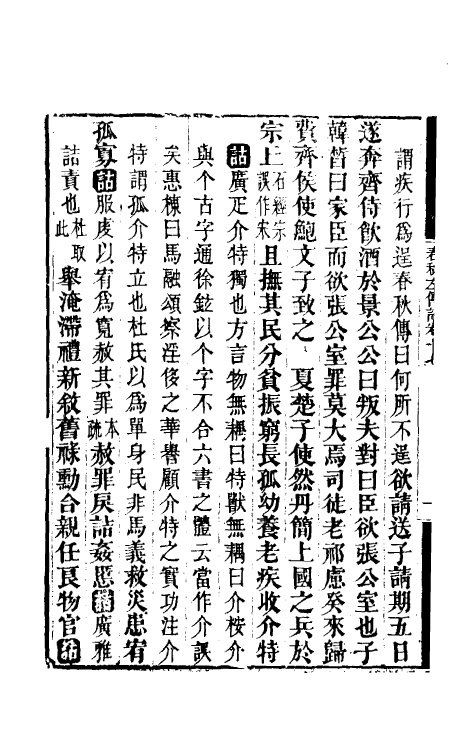 謂疾行爲逞春秋傳曰何所不逞欲請送子請期五日
遂奔齊侍飲酒於景公公曰叛夫對曰臣欲張公室也子
韓晳曰家臣而欲張公室罪莫大焉司徒老祁慮癸來歸
費齊侯使鮑文子致之 夏楚子使然丹簡上國之兵於
宗丘石經宗誤作宋且撫其民分貧振窮長孤幼養老疾收介特
詁廣疋介特獨也方言物無耦曰特獸無耦曰介桉介
與个古字通徐鉉以个字不合六書之體云當作介誤
矣惠棟曰馬融頌察淫侈之華譽顧介特之實功注介
特謂孤介特立也杜氏以爲單身民非馬義救災患宥
孤寡詁服虔以宥爲寬赦其罪本疏赦罪戾詰姦慝詁廣雅
詰責也杜取此舉淹滯禮新敘舊祿勳合親任良物官詁
春秋左傳詁卷十八